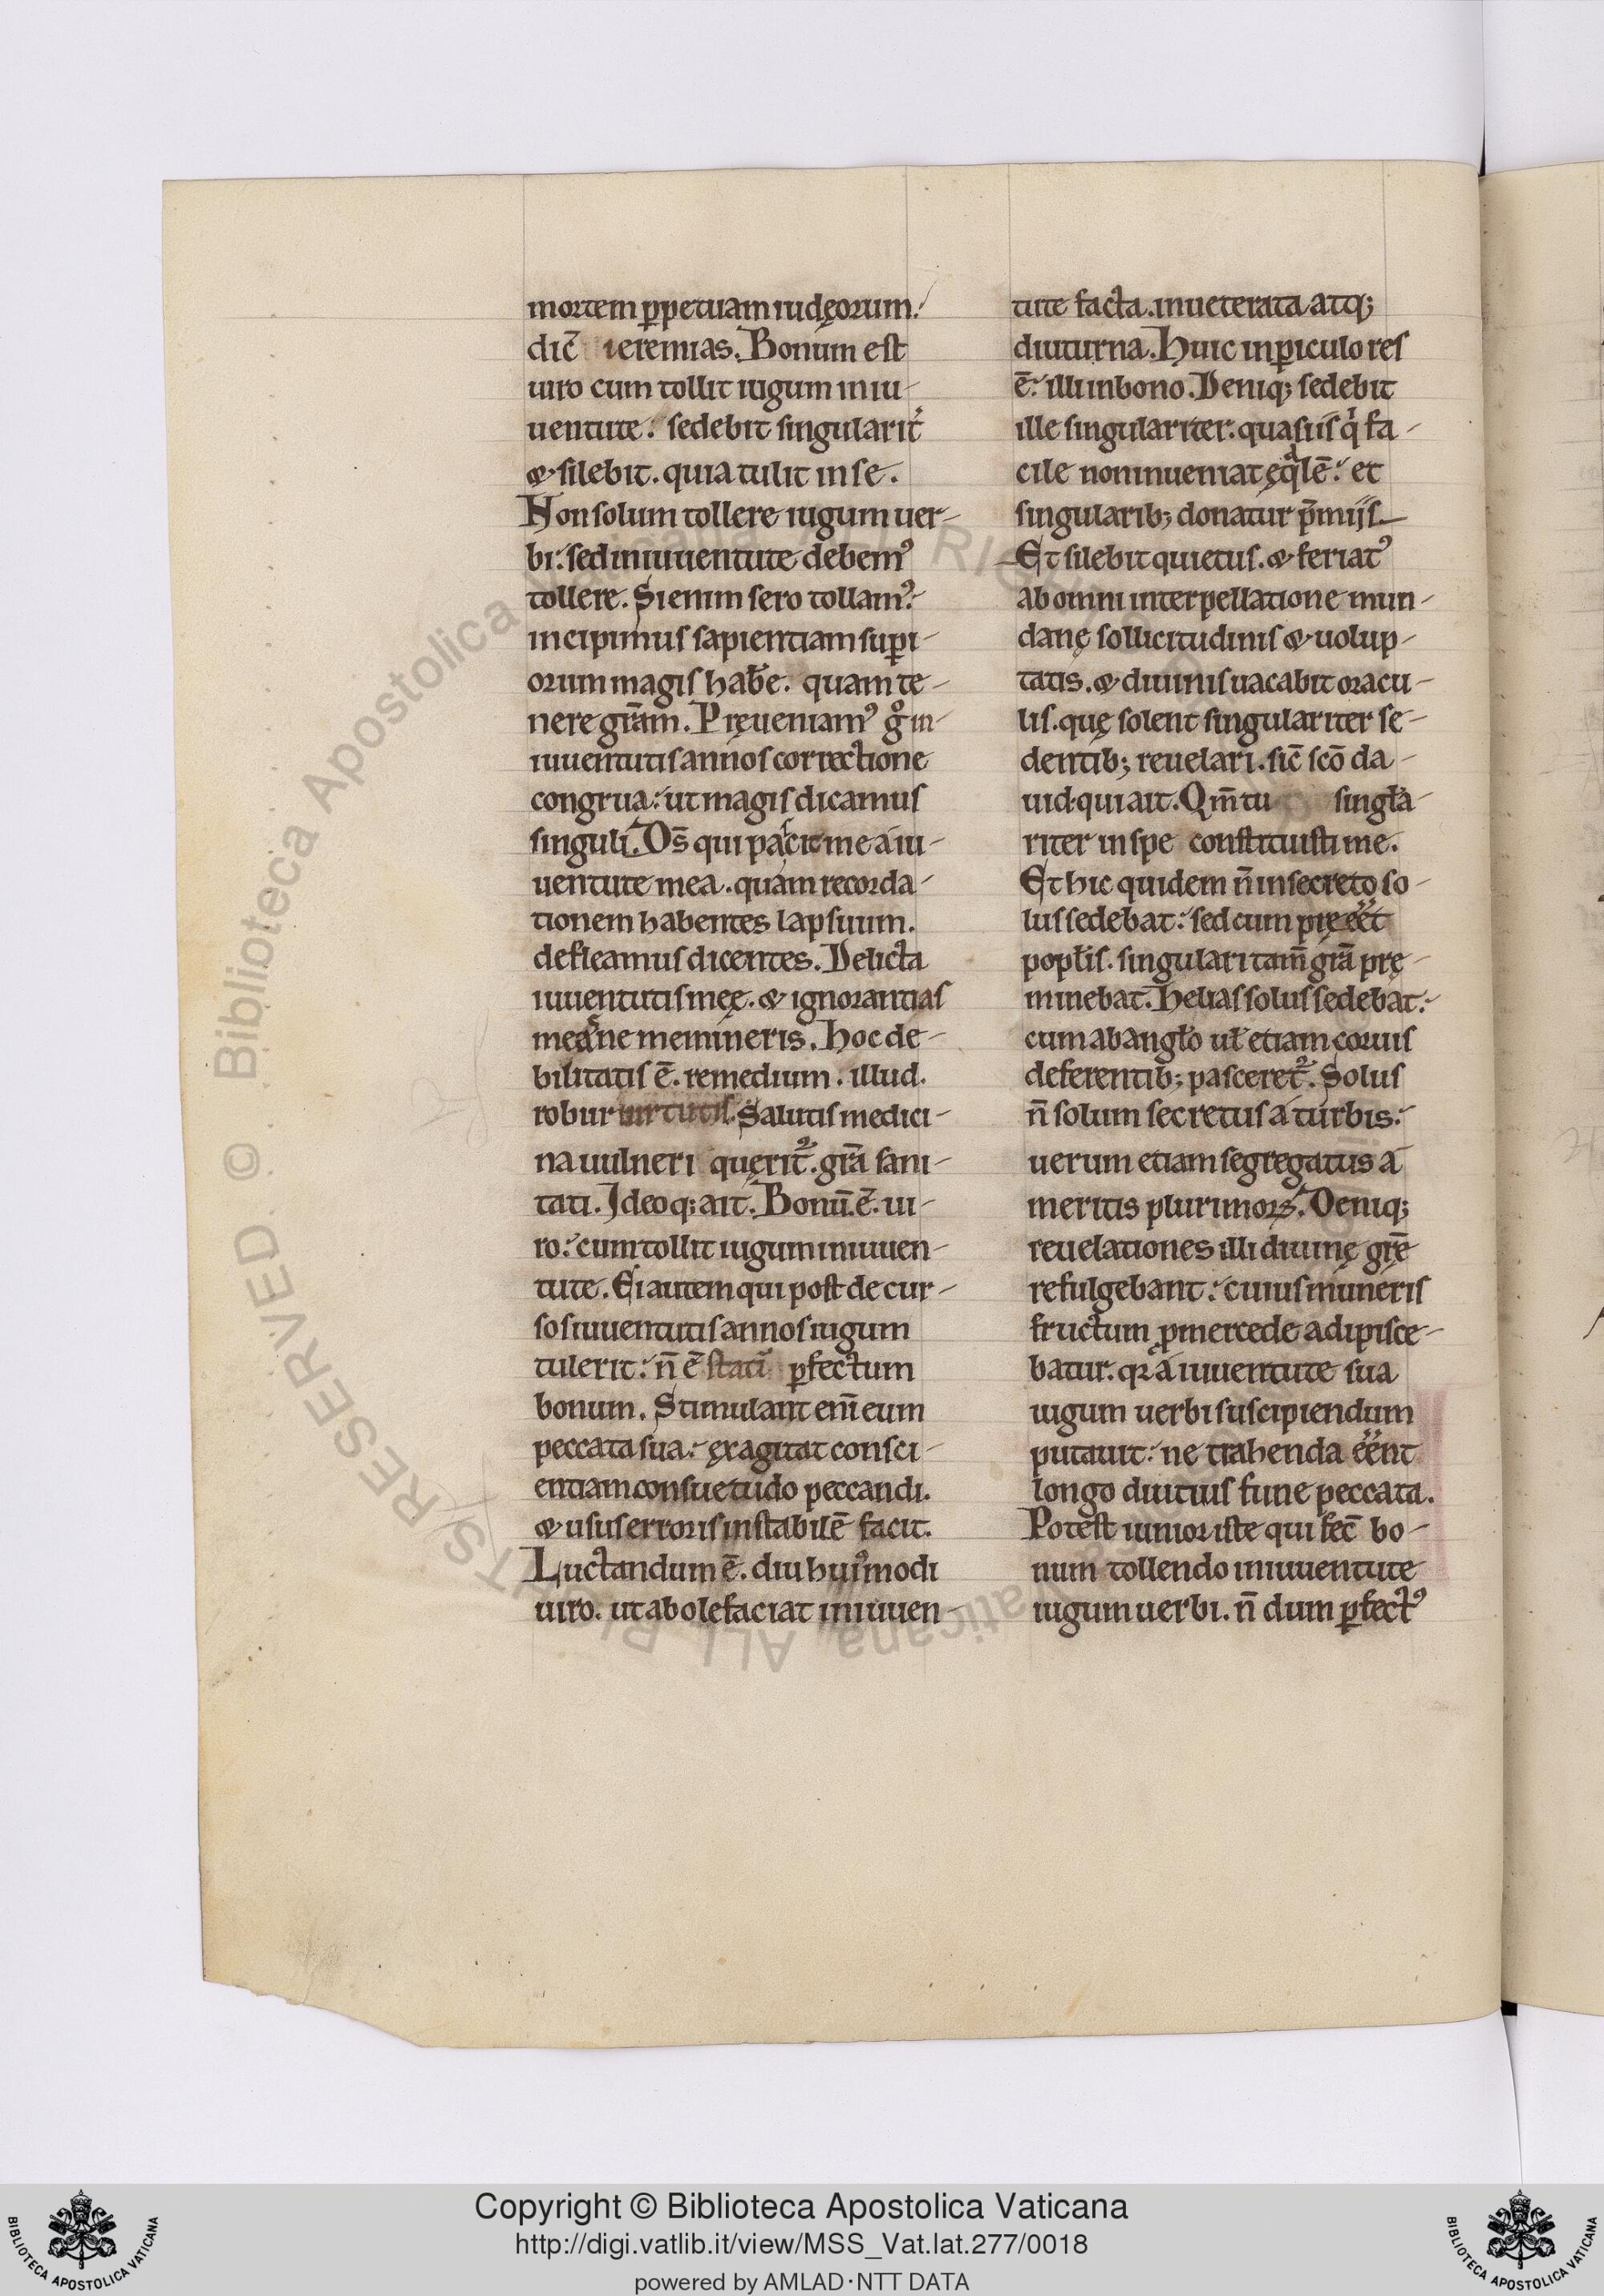 mortem ꝑpetuam iudęorum.
dic̄ ieremias. Bonum est
uiro cum tollit iugum in iu-
uentute. sedebit singularit̾
& silebit. quia tulit in se.
Non solum tollere iugum uer-
bi. sed in iuuentute debemꝰ
tollere. Si enim sero tollamꝰ.
incipimus sapientiam suꝑi-
orum magis hab̄e. quam te-
nere gr̄am. Pręueniamꝰ gͦ in-
iuuentutis annos correctione
congrua. ut magis dicamus
singuli. Ds̄ qui pascit me a iu-
uentute mea. quam recorda-
tionem habentes lapsuum.
defleamus dicentes. Delicta
iuuentutis meę. & ignorantias
meas ne memineris. Hoc de-
bilitatis ē. remedium. illud.
robur uirtutis. Salutis medici-
na uulneri querit᷑. gr̄a sani-
tati. Ideoq; ait. Bonū. ē. ui-
ro. cum tollit iugum in iuuen-
tute. Ei autem qui post decur-
sos iuuentutis annos iugum
tulerit. n̄ ē statī ꝑfectum
bonum. Stimulant enī eum
peccata sua. ęxagitat consci-
entiam consuetudo peccandi.
& usus erroris instabilē facit.
Luctandum ē. diu huiꝰmodi
uiro. ut abolefaciat in iuuen-
tute facta. inueterata atq;
diuturna. Huic in ꝑiculo res
ē. illi in bono. Deniq; sedebit
ille singulariter. quasi is qͥ fa-
cile non inueniat ęqͣlē. et
singularib; donatur p̄mijs
Et silebit quietus. & feriatꝰ
ab omni interpellatione mun-
danę sollicitudinis & uolup-
tatis. & diuinis uacabit oracu-
lis. quę solent singulariter se-
dentib; reuelari. sic̄ scō da-
uid. qui ait. Qm̄ tu singl̄a-
riter in spe constituisti me.
Et hic quidem n̄ in secreto so-
lus sedebat. sed cum pręēēt
popl̄is. singulari tam̄ gr̄a prę-
minebat. Helias solus sedebat.
cum ab angl̄o ul̄ etiam coruis
deferentib; pasceret᷑. Solus
n̄ solum secretus a turbis.
uerum etiam segregatus a
meritis plurimoꝝ. Deniq;
reuelationes illi diuinę grē
refulgebant. cuius muneris
fructum ꝓ mercede adipisce-
batur. qꝛ a iuuentute sua
iugum uerbi suscipiendum
putauit. ne trahenda ēēnt
longo diutius fune peccata.
Potest iunior iste qui fec̄ bo-
num tollendo in iuuentute
iugum uerbi. n̄ dum ꝑfectꝰ
Biblioteca Apostolica Vaticana ALL RIGHTS RESERVED ©
Copyright © Biblioteca Apostolica Vaticana
http://digi.vatlib.it/view/MSS_Vat.lat.277/0018
powered by AMLAD·NTT DATA
BIBLIOTECA APOSTOLICA VATICANA
BIBLIOTECA APOSTOLICA VATICANA